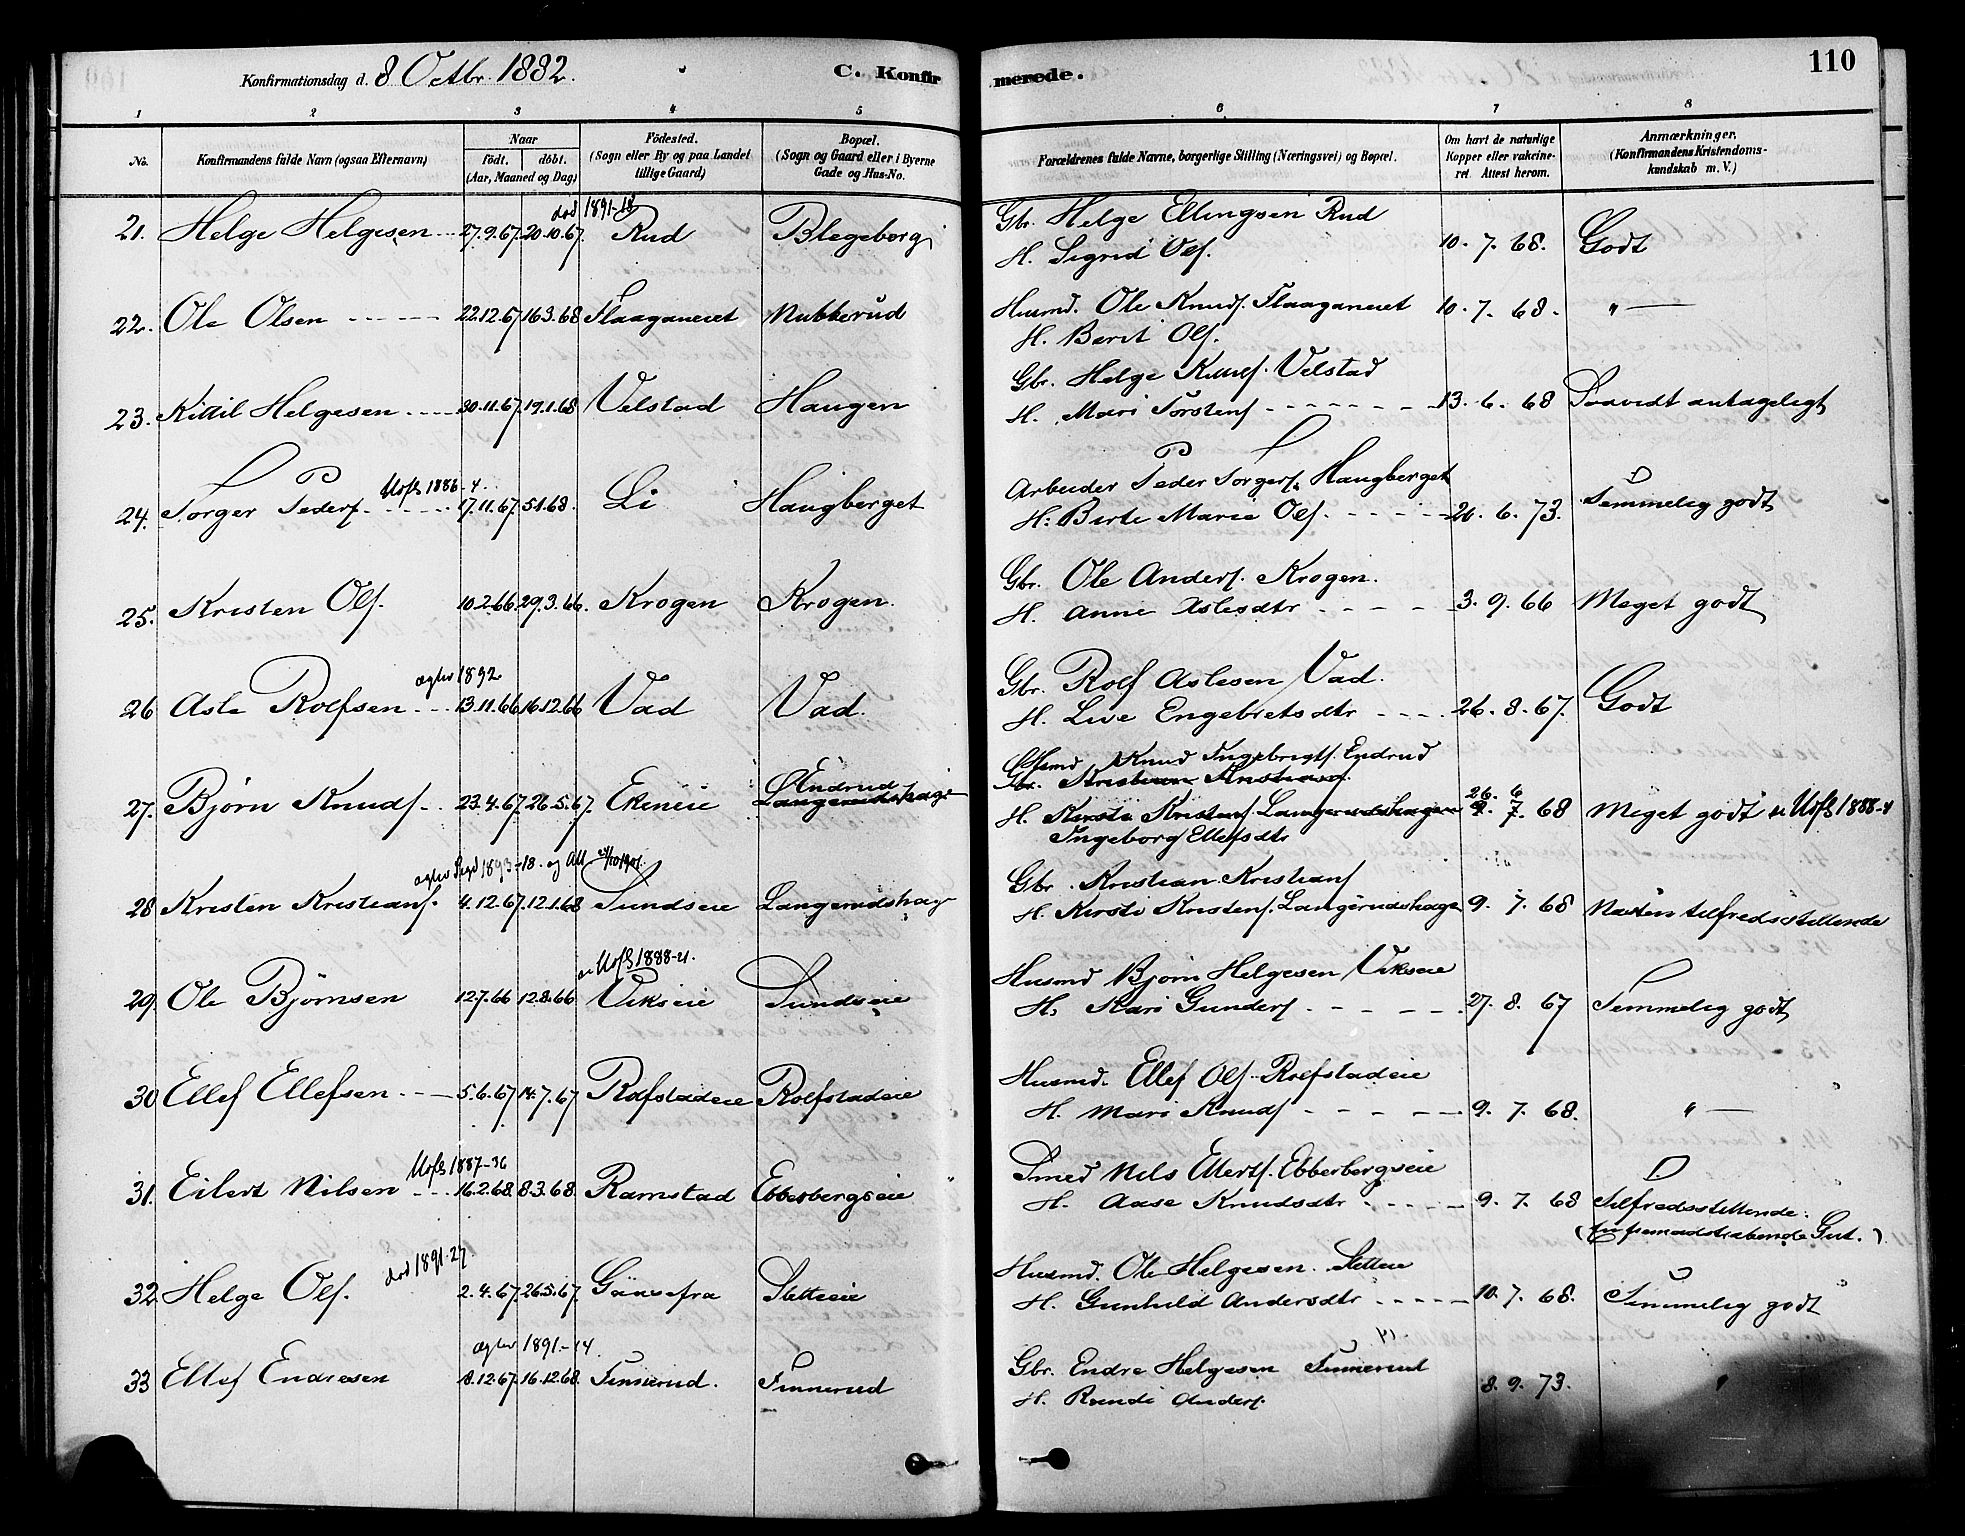 Konfirmationsdag d. 8 Octbr. 1882.
C. Konfir
merede.
110
1 2 3 4 5 6 7 8
No.
Konfirmandens fulde Navn (ogsaa Efternavn)
Naar
födt. döbt.
(Aar, Maaned og Dag)
Födested.
(Sogn eller By og paa Landet
tillige Gaard)
Bopæl.
(Sogn og Gaard eller i Byerne
Gade og Hus-No.
Forældrenes fulde Navne, borgerlige Stilling (Næringsvei) og Bopæl.
Om havt de naturlige
Kopper eller vakcine-
ret. Attest herom.
Anmærkninger.
(Konfirmandens Kristendoms-
kundskab m. V.)
död 1891-18
21. Helge Helgesen 27.9.67. 20.10.67. Rud Blegeberg Gbr. Helge Ellingsen Rud
H. Sigrid Ols. 10.7.68. Godt
22. Ole Olsen 22.12.67. 16.3.68 Flaaganeiet Nubberud Husmd. Ole Knuds. Flaaganeiet 10.7.68. "
H. Berit Ols.
Gbr. Helge Knuds. Velstad
23. Kittil Helgesen 30.11.67. 19.1.68 Velstad Haugen H. Mari Torstens. 13.6.68 Saavidt antageligt
Uofb 1886-4.
Arbeider Peder Torgers. Haugberget
24. Torger Peders. 17.11.67. 5.1.68. Li Haugberget H. Berte Marie Ols. 26.6.73. Temmelig godt
Gbr. Ole Anders. Krogen.
25. Kristen Ols. 10.2.66. 29.3.66. Krogen Krogen. H. Anne Aslesdtr 3.9.66 Meget godt
ægtev 1892
Gbr. Rolf Aslesen Vad.
26 Asle Rolfsen 13.11.66 16.12.66 Vad Vad. H. Live Engebretsdtr 26.8.67. Godt
Husmd Knud Ingebrigts. Endrud
Gbr. Kristian Kristians.
27. Björn Knuds. 23.4.67. 26.5.67. Ekeneie Endrud
Langerudshage
H. Kirsti Kristens. Langerudshagen 26.6
9.7.68 Meget godt Uofb 1888-4
Ingeborg Ellefsdtr
Gbr. Kristian Kristians.
28 Kristen Kristians. 4.12.67. 12.1.68 Sundseie Langerudshage H. Kirsti Kristens. Langerudshage 9.7.68 Næsten tilfredsstillende
Uofb 1888-21.
Husmd Björn Helgesen Vikseie
29. Ole Björnsen 12.7.66 12.8.66 Vikseie Sundseie H. Kari Gunders. 27.8.67 Temmelig godt
Husmd. Ellef Ols. Rolfstadeie
30 Ellef Ellefsen 5.6.67 14.7.67 Rolfstadeie Rolfstadeie H. Mari Knuds. 9.7.68. "
Uofb 1887-36
Smed Nils Eilerts. Ebberbergseie
31. Eilert Nilsen 16.2.68. 8.3.68. Ramstad Ebberbergseie H. Aase Knudsdtr 9.7.68 Tilfredsstillende.
(En fremadstræbende Gut.)
död 1891-27
Husmd. Ole Helgesen. Sletteie
32. Helge Ols. 2.4.67. 26.5.67. Gausefra Sletteie H. Gunhild Andersdtr 10.7.68. Temmelig godt
ægtev 1891-14
Gbr. Endre Helgesen Finnerud
33 Ellef Endresen 8.12.67. 16.12.68. Finnerud. Finnerud 8.9.73. "
H. Randi Anders.